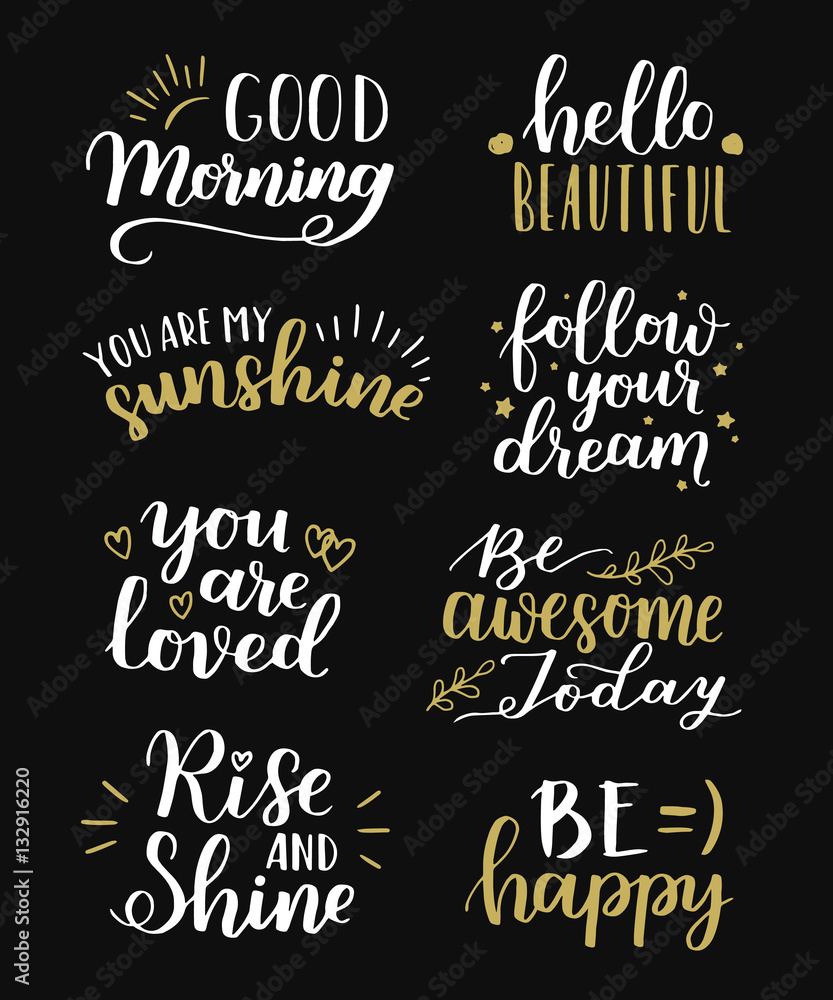 GOOD
Morning
hello
BEAUTIFUL
YOU ARE MY
sunshine
follow
your
dream
you
are
loved
Be
awesome
Today
Rise
AND
Shine
BE =)
happy
Adobe Stock | #132916220
Adobe Stock